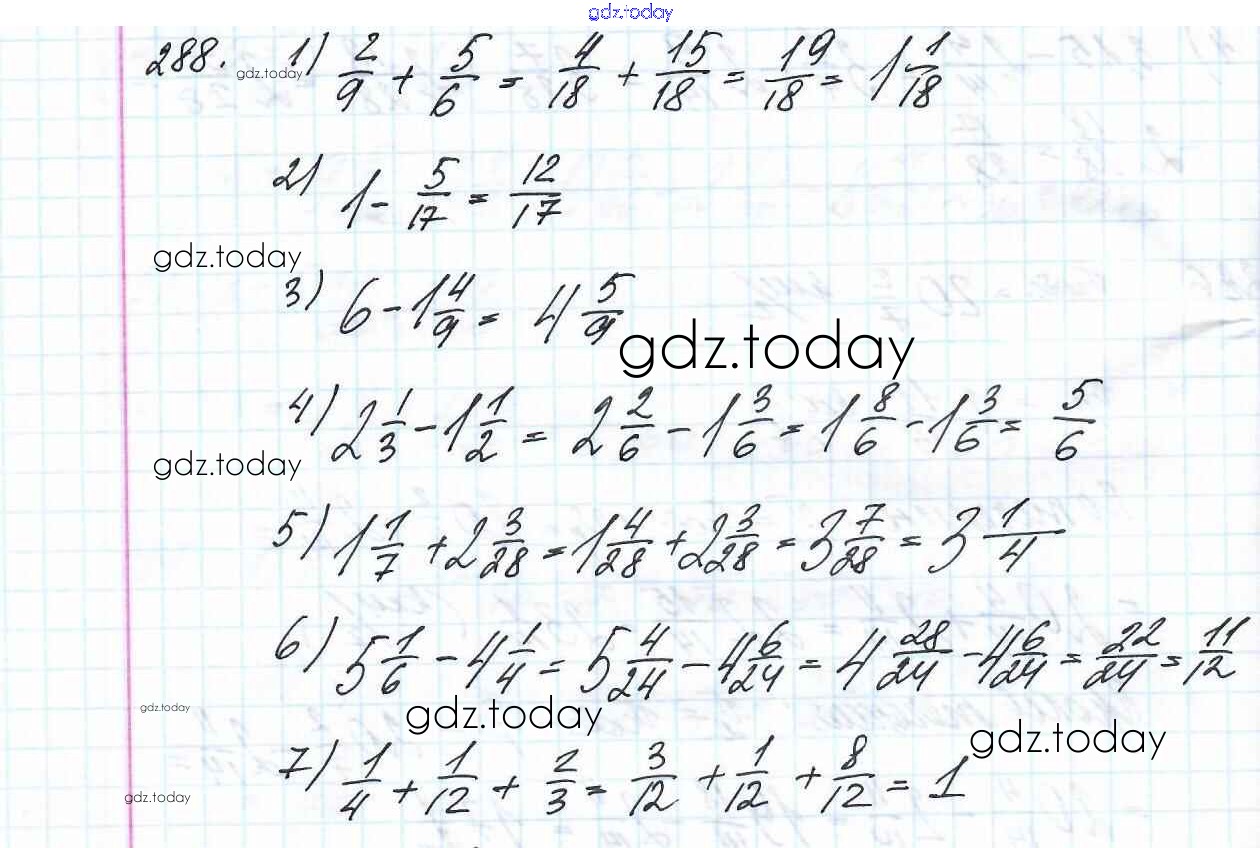 gdz.today
288. gdz.today 1) 2/9 + 5/6 = 4/18 + 15/18 = 19/18 = 1 1/18
2) 1 - 5/17 = 12/17
gdz.today
3) 6 - 1 4/9 = 4 5/9
gdz.today
4) 2 1/3 - 1 1/2 = 2 2/6 - 1 3/6 = 1 8/6 - 1 3/6 = 5/6
gdz.today
5) 1 1/7 + 2 3/28 = 1 4/28 + 2 3/28 = 3 7/28 = 3 1/4
6) 5 1/6 - 4 1/4 = 5 4/24 - 4 6/24 = 4 28/24 - 4 6/24 = 22/24 = 11/12
gdz.today gdz.today
gdz.today
7) 1/4 + 1/12 + 2/3 = 3/12 + 1/12 + 8/12 = 1
gdz.today